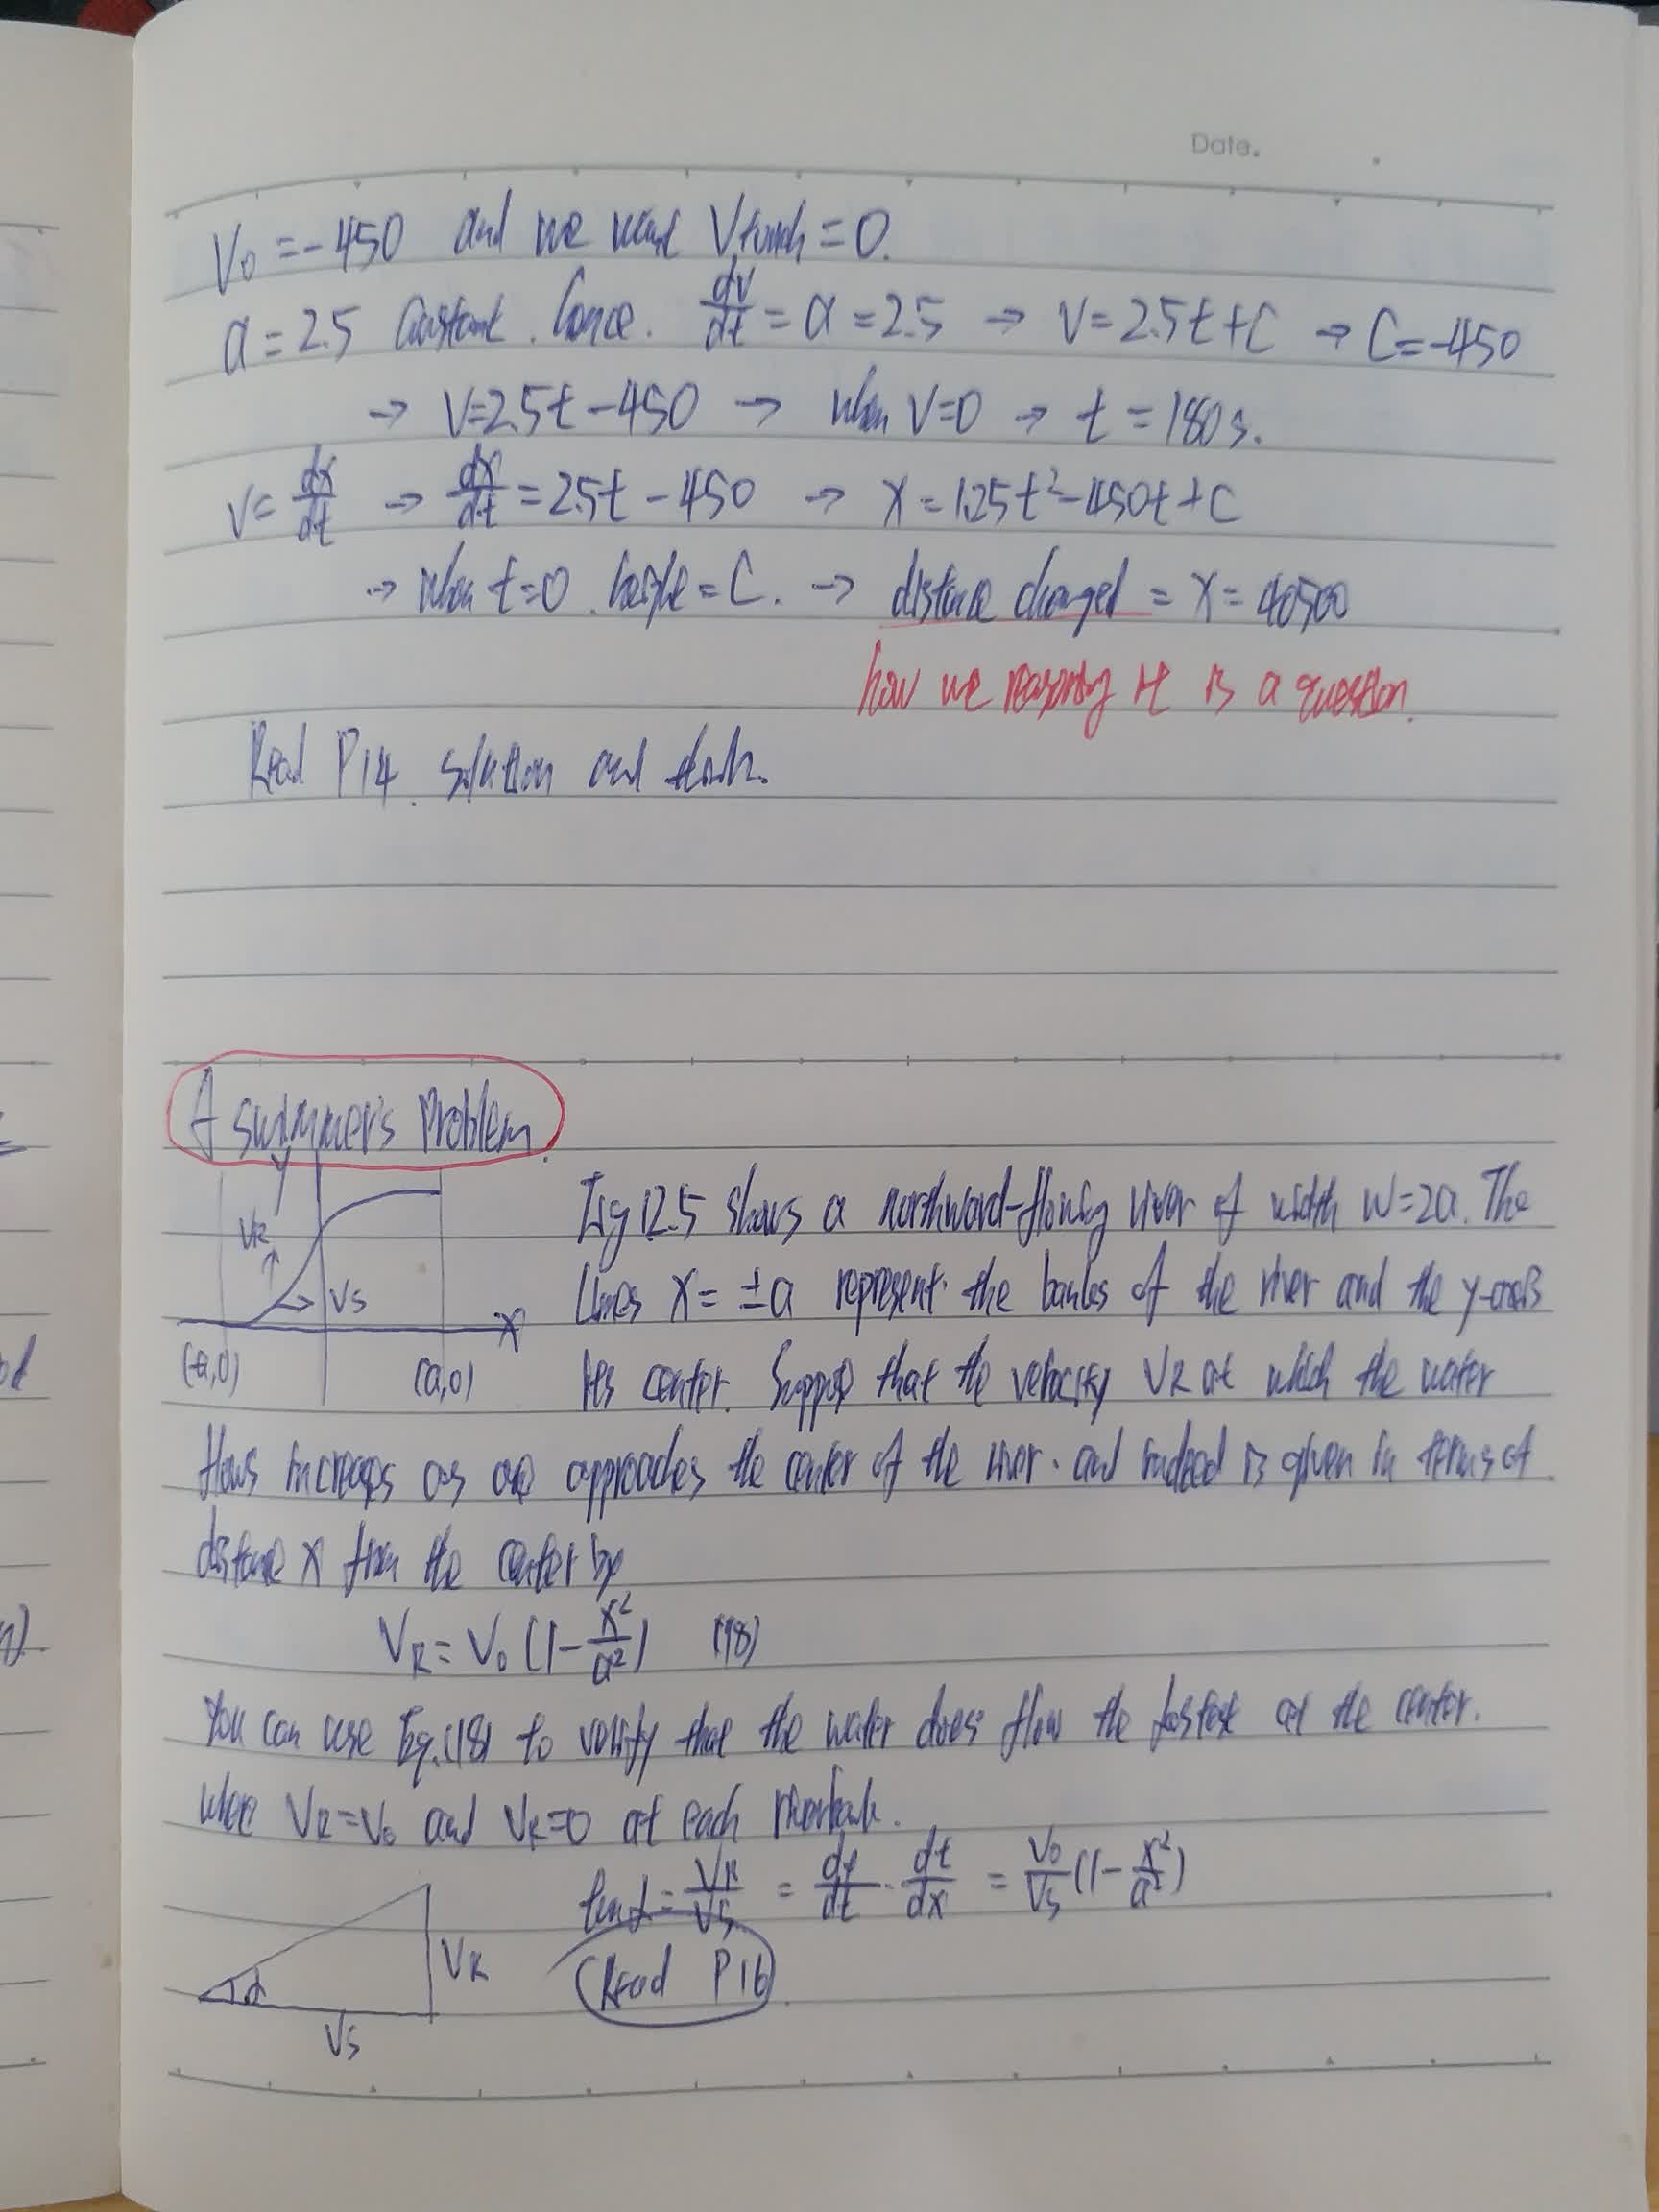 Date.
V₀ = -450 and we want Vtouch = 0.
a = 2.5 constant. hence. dv/dt = a = 2.5 → V = 2.5t + C → C = -450
→ V = 2.5t - 450 → when V=0 → t = 180s.
v = dx/dt → dx/dt = 2.5t - 450 → x = 1.25t² - 450t + C
→ when t=0. height = C. → distance changed = x = 40500
how we reasoning it is a question.
Read P14. solution and think.
A swimmer's Problem.
Y
VR
VS
X
(-a,0) (a,0)
Fig 12.5 shows a northward-flowing river of width w=2a. The
lines x = ±a represent the banks of the river and the y-axis
its center. Suppose that the velocity VR at which the water
flows increases as one approaches the center of the river. and indeed is given in terms of
distance x from the center by
VR = V₀ (1 - x²/a²) (18)
You can use Eq.(18) to verify that the water does flow the fastest at the center.
where VR=V₀ and VR=0 at each riverbank.
tan α = VR/VS = dy/dt · dt/dx = V₀/VS (1 - x²/a²)
α
VR
VS
Read P16